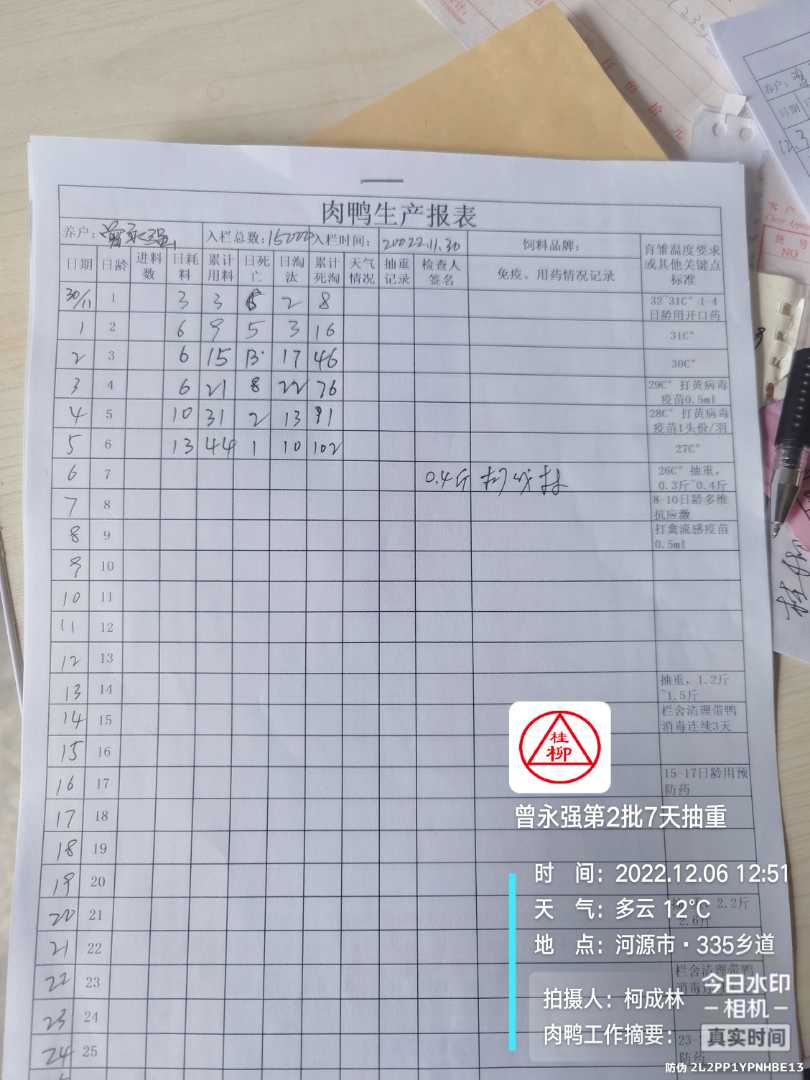 肉鸭生产报表
养户：曾永强 入栏总数：15000 入栏时间：2022.11.30 饲料品牌： 育雏温度要求或其他关键点标准
日期 日龄 进料数 日耗料 累计用料 日死亡 日淘汰 累计死淘 天气情况 抽重记录 检查人签名 免疫、用药情况记录
30/11 1 3 3 6 2 8 32~31C° 1-4日龄用开口药
1 2 6 9 5 3 16 31C°
2 3 6 15 13 17 46 30C°
3 4 6 21 8 22 76 29C° 打黄病毒疫苗0.5ml
4 5 10 31 2 13 91 28C° 打黄病毒疫苗1头份/羽
5 6 13 44 1 10 102 27C°
6 7 0.4斤 26C° 抽重，0.3斤~0.4斤
7 8 8-10日龄多维抗应激
8 9 打禽流感疫苗0.5ml
9 10
10 11
11 12
12 13
13 14 抽重，1.2斤~1.5斤
14 15 栏舍清理带鸭消毒连续3天
15 16
16 17 15-17日龄用预防药
17 18
18 19
19 20
20 21 2.2斤
21 22
22 23 栏舍清理带鸭
23 24
24 25 防药
桂柳
曾永强第2批7天抽重
时 间：2022.12.06 12:51
天 气：多云 12℃
地 点：河源市·335乡道
拍摄人：柯成林
肉鸭工作摘要：
今日水印
-相机-
真实时间
防伪 2L2PP1YPNHBE13